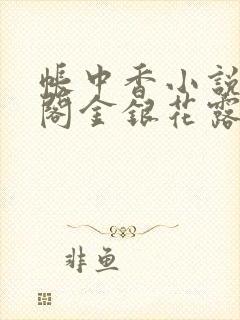 帐中香小說
閣金銀花露
非魚